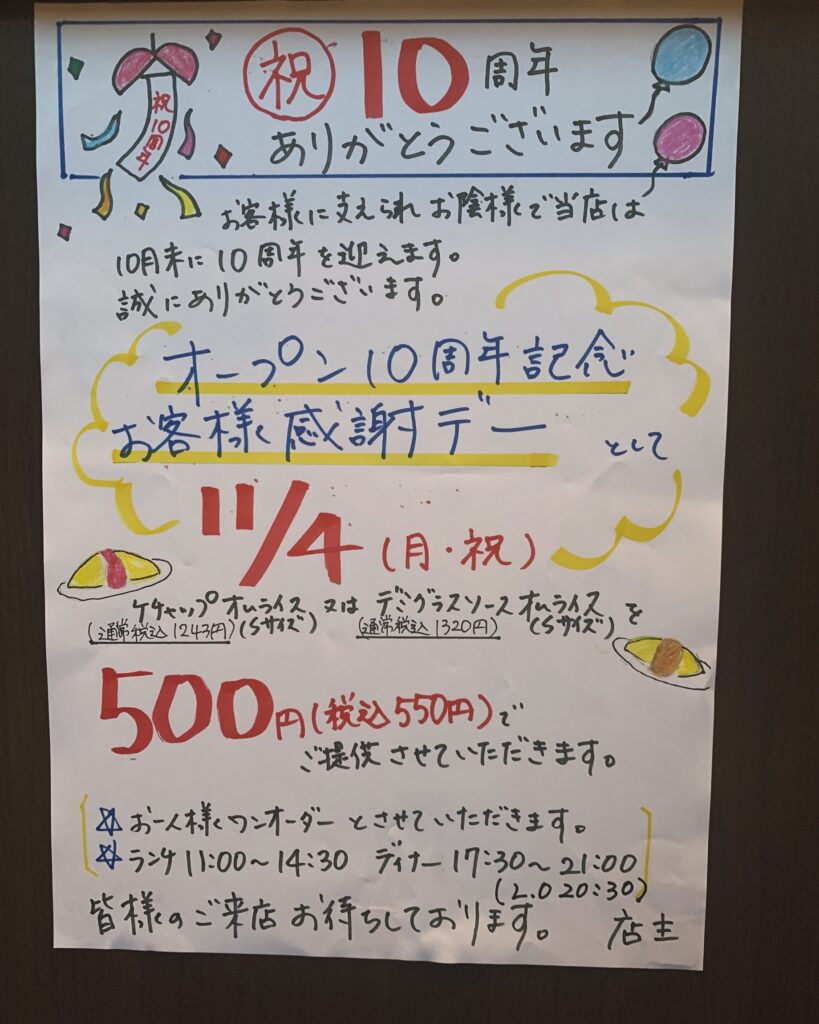 祝10周年
㊗ 10周年
ありがとうございます
お客様に支えられ お陰様で当店は
10月末に10周年を迎えます。
誠にありがとうございます。
オープン10周年記念
お客様感謝デー として
11/4(月・祝)
ケチャップオムライス 又は デミグラスソースオムライス を
(通常税込1243円)(Sサイズ) (通常税込1320円) (Sサイズ)
500円(税込550円)で
ご提供させていただきます。
☆ お一人様ワンオーダーとさせていただきます。
☆ ランチ 11:00~14:30 ディナー 17:30~21:00
(L.O 20:30)
皆様のご来店お待ちしております。 店主